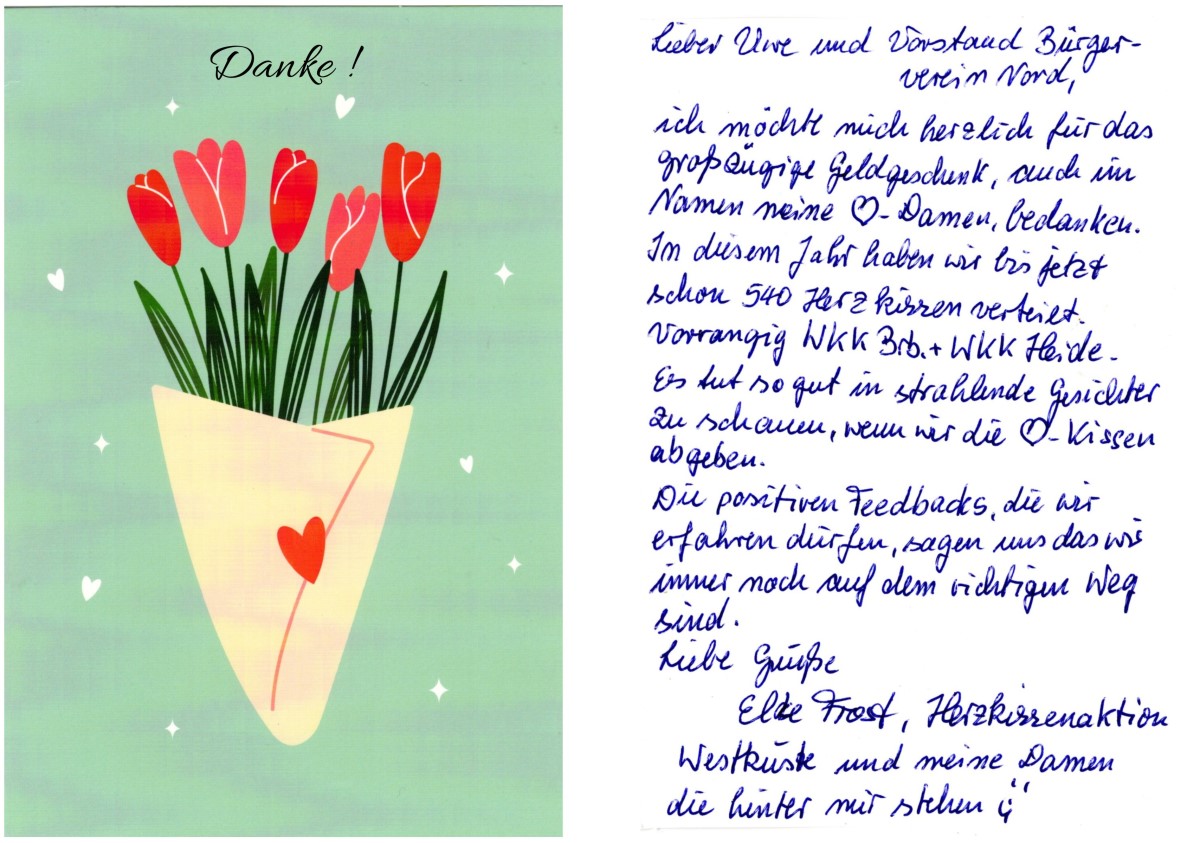 Danke !
Lieber Uwe und Vorstand Bürger-
verein Nord,
ich möchte mich herzlich für das
großzügige Geldgeschenk, auch im
Namen meine ♡-Damen, bedanken.
In diesem Jahr haben wir bis jetzt
schon 540 Herzkissen verteilt.
Vorrangig WKK Brb. + WKK Heide.
Es tut so gut in strahlende Gesichter
zu schauen, wenn wir die ♡-Kissen
abgeben.
Die positiven Feedbacks, die wir
erfahren dürfen, sagen uns das wir
immer noch auf dem richtigen Weg
sind.
Liebe Grüße
Elke Frost, Herzkissenaktion
Westküste und meine Damen
die hinter mir stehen